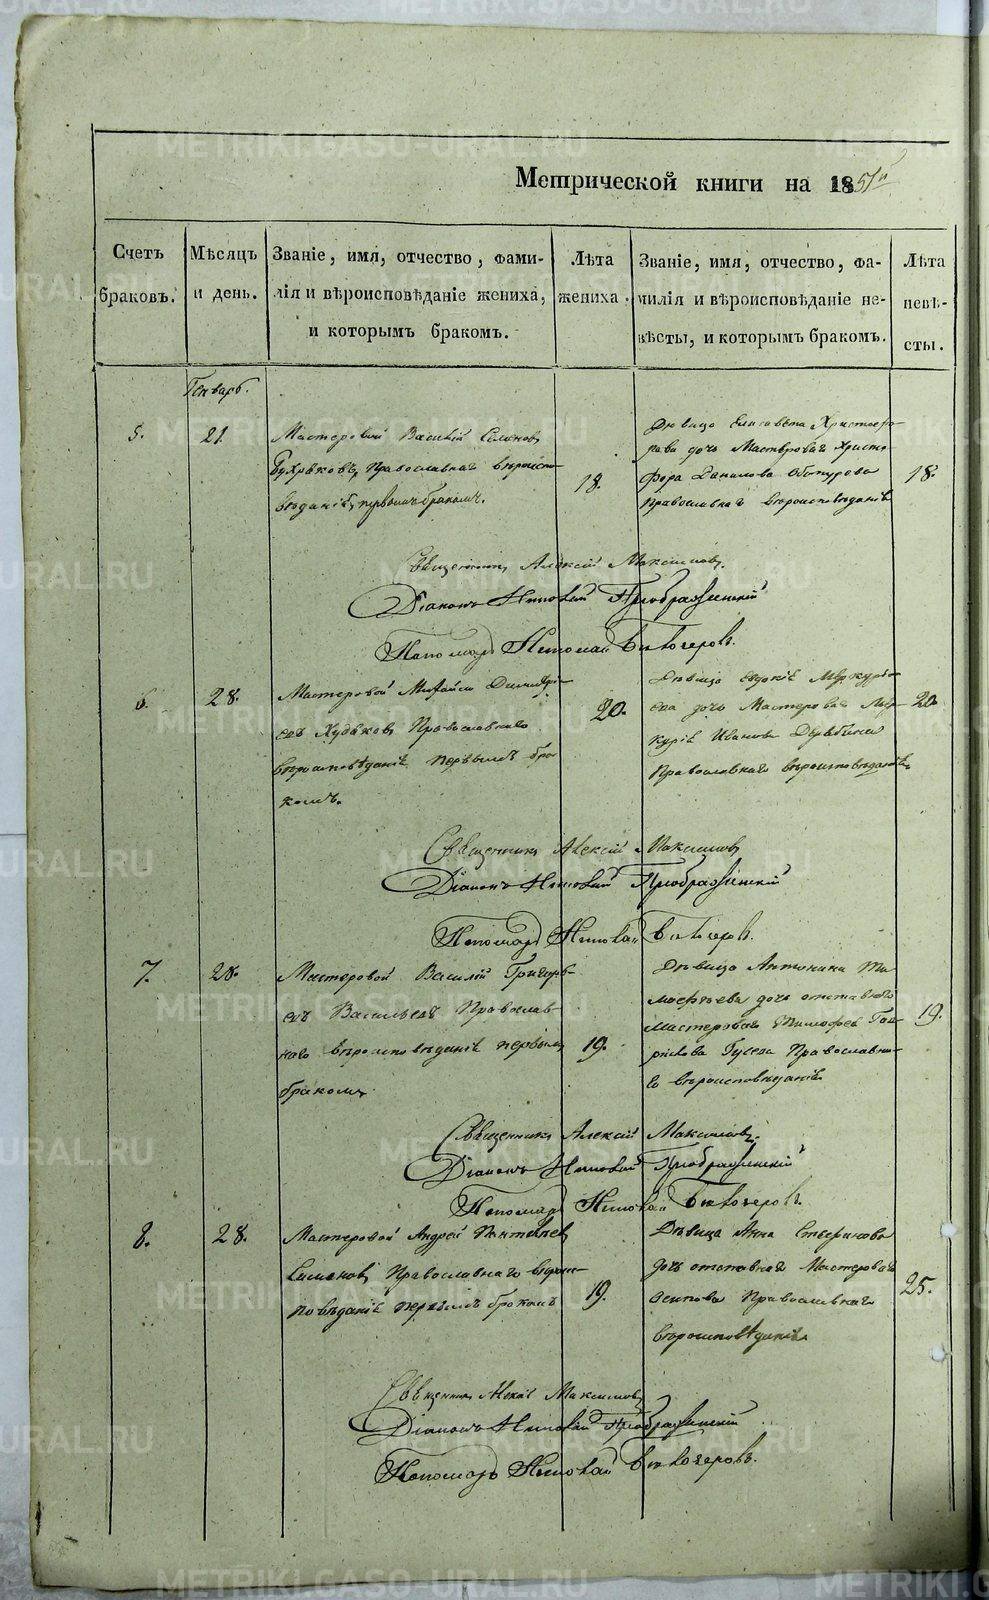 Метрической книги на 1851й
Счетъ браковъ.
Мѣсяцъ и день.
Званіе, имя, отчество, фами-
лія и вѣроисповѣданіе жениха,
и которымъ бракомъ.
Лѣта жениха.
Званіе, имя, отчество, фа-
милія и вѣроисповѣданіе не-
вѣсты, и которымъ бракомъ.
Лѣта невѣ-
сты.
Генварь.
5.
21.
Мастеровой Василій Семенов
Православнаго вѣроиспо-
вѣданія, первымъ бракомъ.
18.
Дѣвица Елисавета Христофо-
рова дочь Мастероваго Христо-
фора Данилова
Православнаго вѣроисповѣданія
18.
Священникъ Алексій Максимовъ.
Діаконъ Николай Преображенскій
Пономарь Николай
6.
28.
Мастеровой Михайло Димитрі-
евъ Худяковъ Православнаго
вѣроисповѣданія первымъ бра-
комъ.
20.
Дѣвица Евдокія Меркурье-
ва дочь Мастероваго Мер-
курія Иванова Дерябина
Православнаго вѣроисповѣданія
20
Священникъ Алексій Максимовъ
Діаконъ Николай Преображенскій
Пономарь Николай
7.
28.
Мастеровой Василій Григорь-
евъ Васильевъ Православ-
наго вѣроисповѣданія первымъ
бракомъ
19.
Дѣвица Антонина Ти-
мофѣева дочь отставнаго
Мастероваго Тимофея Гав-
рилова Гусева Православна-
го вѣроисповѣданія
19.
Священникъ Алексій Максимовъ.
Діаконъ Николай Преображенскій
Пономарь Николай
8.
28.
Мастеровой Андрей Пантелѣев
Симановъ Православнаго вѣроис-
повѣданія первымъ бракомъ
19.
Дѣвица Анна
дочь отставнаго Мастероваго
Осипова Православнаго
вѣроисповѣданія
25.
Священникъ Алексій Максимовъ
Діаконъ Николай Преображенскій
Пономарь Николай
METRIKI.GASO-URAL.RU